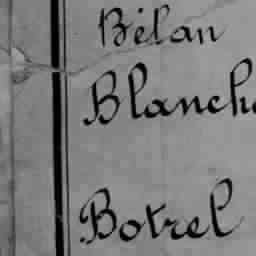 Bélan
Blanch
Botrel